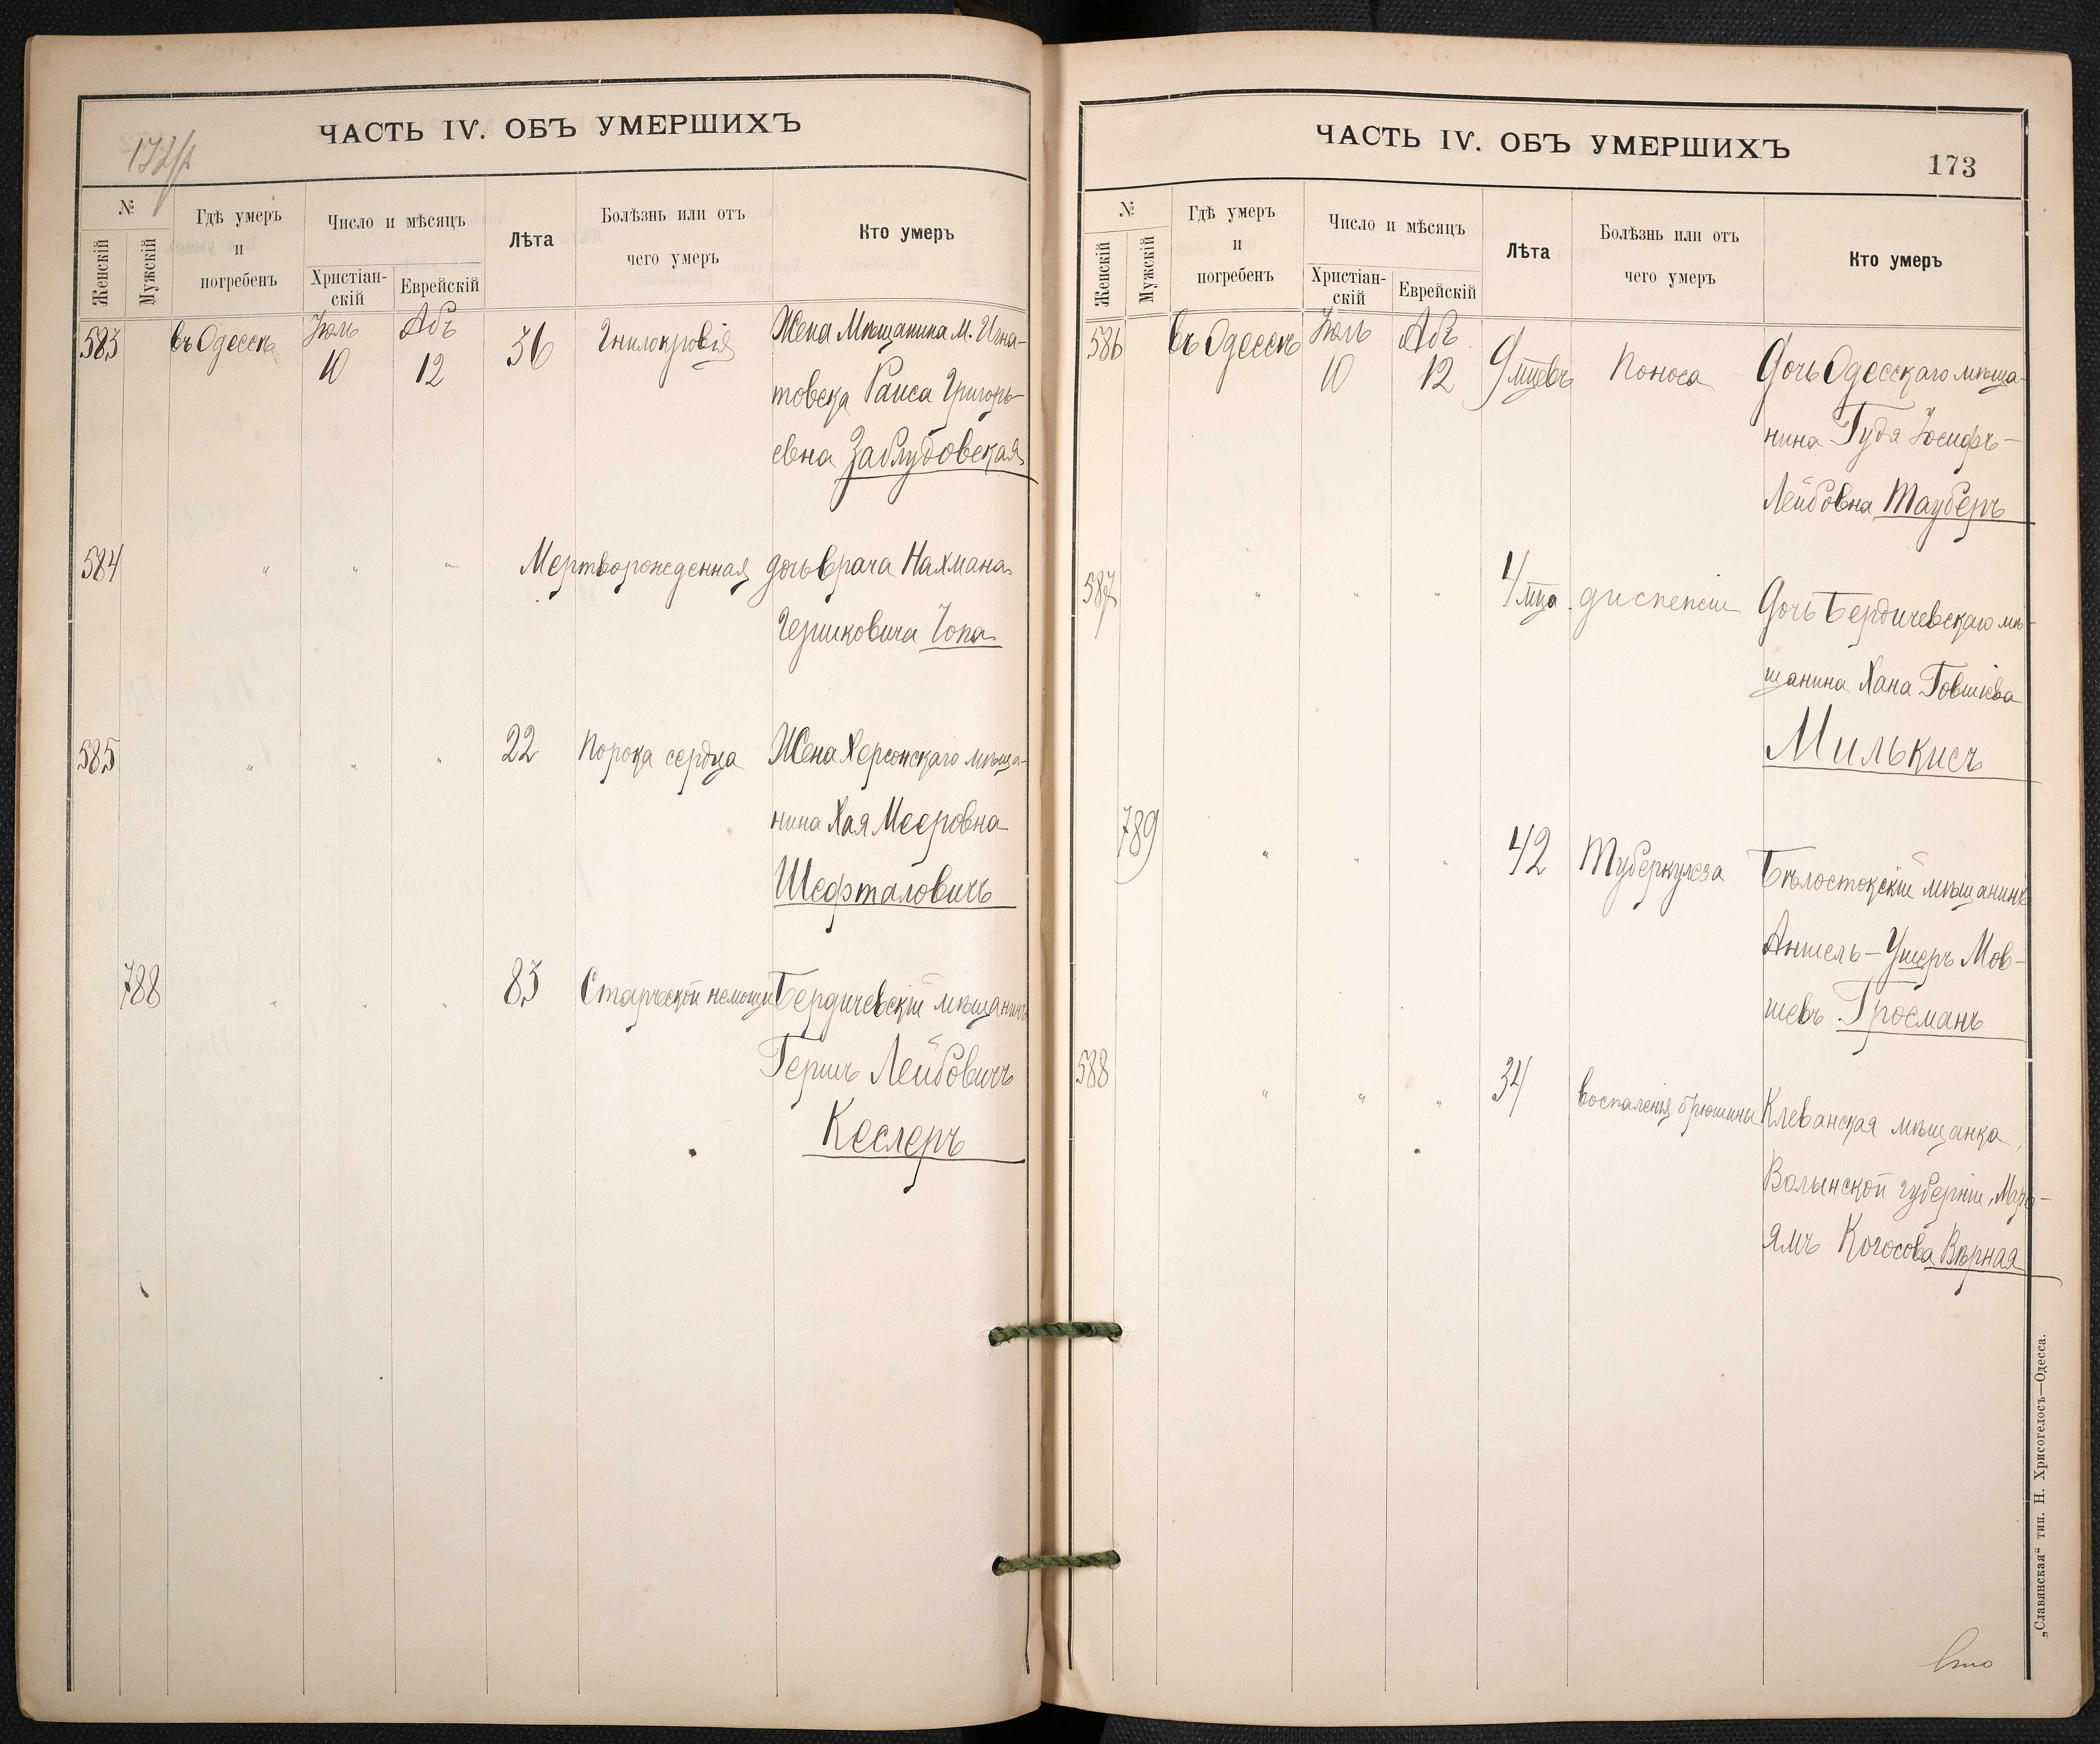 ЧАСТЬ IV. ОБЪ УМЕРШИХЪ
№
Женскій
Мужскій
Гдѣ умеръ
и
погребенъ
Число и мѣсяцъ
Христіан-
скій
Еврейскій
Лѣта
Болѣзнь или отъ
чего умеръ
Кто умеръ
583 въ Одессѣ Іюль 10 Абъ 12 36 Гнилокровія Жена Мѣщанина М. Игна-
товска Раиса Григорь-
евна Заблудовская
584 " " " Мертворожденная дочь врача Нахмана
Гершковича Чопа
585 " " " 22 Порока сердца Жена Херсонскаго мѣща-
нина Хая Мееровна
Шефталовичъ
788 " " " 83 Старческой немощи Бердичевскій мѣщанинъ
Гершъ Лейбовичъ
Кеслеръ
ЧАСТЬ IV. ОБЪ УМЕРШИХЪ
173
№
Женскій
Мужскій
Гдѣ умеръ
и
погребенъ
Число и мѣсяцъ
Христіан-
скій
Еврейскій
Лѣта
Болѣзнь или отъ
чего умеръ
Кто умеръ
586 въ Одессѣ Іюль 10 Абъ 12 9 мцевъ Поноса Дочь Одесскаго мѣща-
нина Гудя Іосифъ-
Лейбовна Тауберъ
587 " " " 4 мца диспепсіи Дочь Бердичевскаго мѣ-
щанина Хана Говшіева
Милькисъ
789 " " " 42 Туберкулеза Бѣлостокскій мѣщанинъ
Аншель-Ушеръ Мов-
шевъ Гросманъ
588 " " " 34 воспаленія брюшины Клеванская мѣщанка,
Волынской губерніи, Мирь-
ямъ Когосова Вѣрная
„Славянская“ тип. Н. Хрисогелосъ—Одесса.